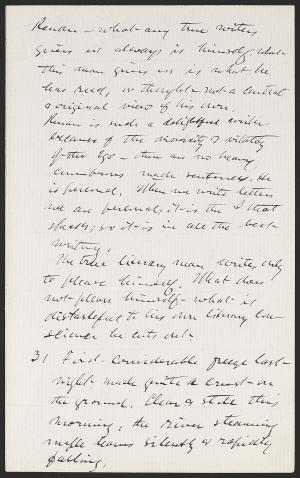 Renan – what any true writer
gives us always is himself, what
this man gives us is what he
has read, or thought – not a central
& original view of his own.
Renan is such a delightful writer
because of the  & vitality
of the Ego – there are no heavy,
cumbrous made sentences. He
is personal. When we write letters
we are personal; it is the I that
speaks; so it is in all the best
writing.
The true literary man writes only
to please himself. What does
not please himself – what is
distasteful to his own literary con-
science he cuts out.
31 First considerable freeze last
night – made quite a crust on
the ground. Clear & still this
morning, the river steaming
maple leaves silently & rapidly
falling.